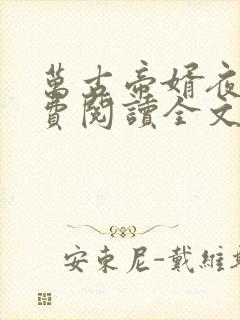 萬古帝婿夜
費閱讀全文
安東尼-戴維斯